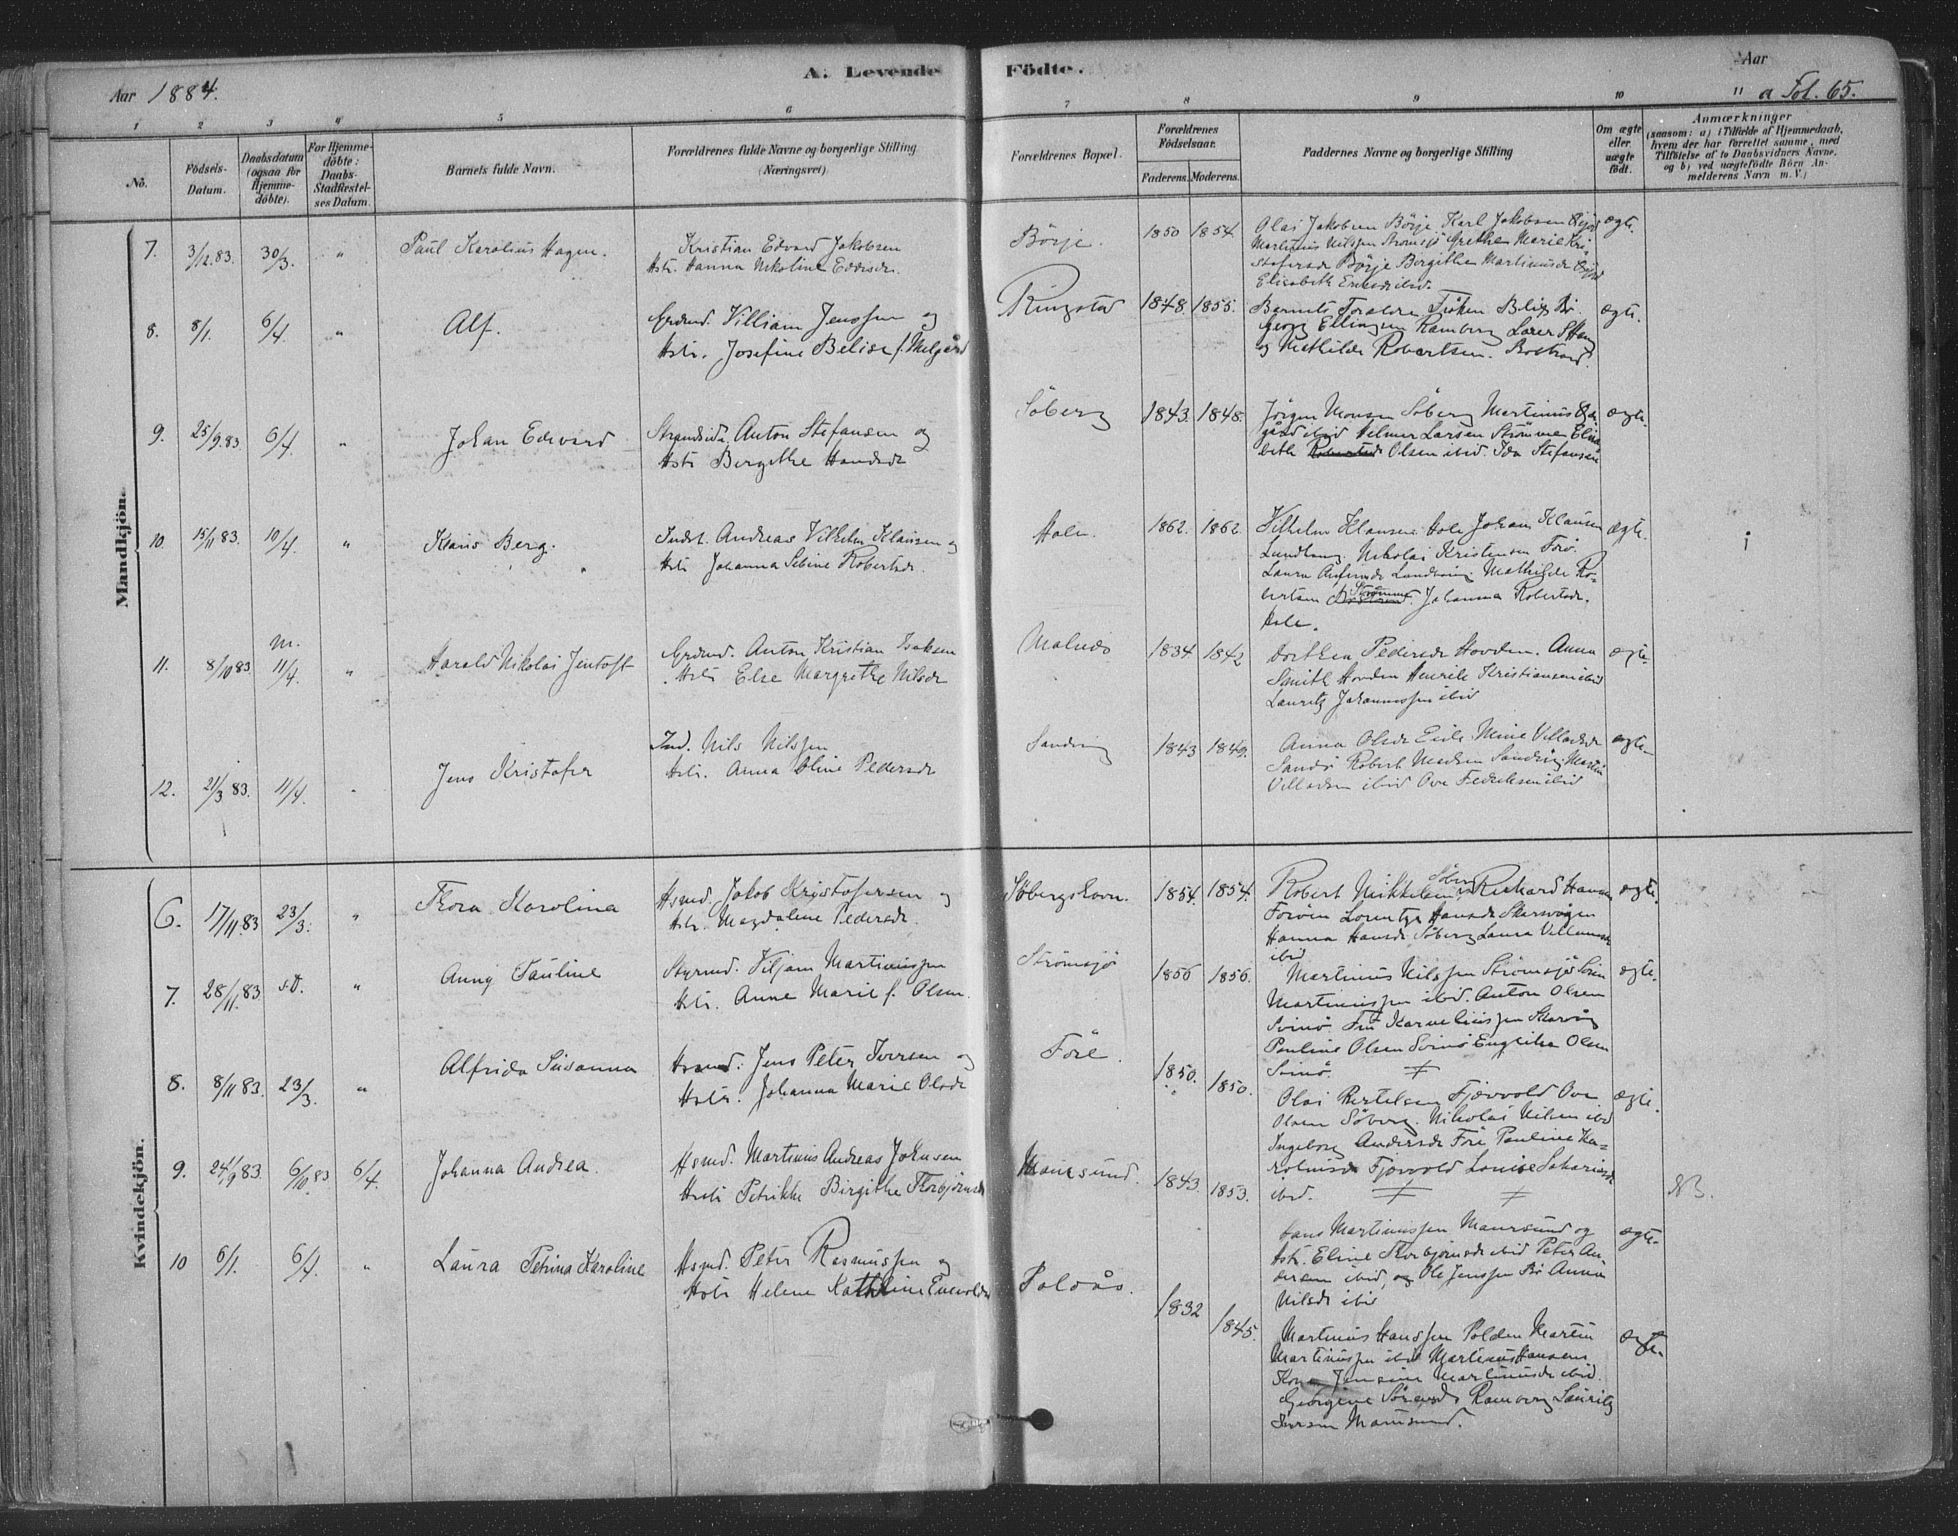 Aar 1884.
A. Levende Födte.
Aar
a Fol. 65.
1 2 3 4 5 6 7 8 9 10 11
No.
Födsels-Datum.
Daabsdatum (ogsaa for Hjemme-döbte).
For Hjemme-döbte: Daabs-Stadfæstel-ses Datum.
Barnets fulde Navn.
Forældrenes fulde Navne og borgerlige Stilling (Næringsvei).
Forældrenes Bopæl.
Forældrenes Födselsaar.
Faderens. Moderens.
Faddernes Navne og borgerlige Stilling
Om ægte eller uægte födt.
Anmærkninger
(saasom: a) i Tilfælde af Hjemmedaab, hvem der har forrettet samme, med Tilföielse af to Daabsvidners Navne, og b) ved uægtefödte Börn Anmelderens Navn m. V.)
Mandkjön.
7. 3/12.83. 30/3. " Paul Karolius Hagen.
Kristian Edvard Jakobsen
Hstr. Hanna Nikoline
Börje. 1850 1854.
Olai Jakobsen Börje Karl Jakobsen
Martinus Nilssen Strömsjö Grethe Marie Kri-
stofersdr Börje Bergithe Martinusdr
Elisabeth ibid.
ægte.
8. 8/1. 6/4. " Alf.
Grdmd. Villiam Jenssen og
Hstr. Josefine Belise f. Melgård
Ringstad 1848. 1855.
Barnets Forældre
Georg Ellingsen Ramberg
og Mathilde Robertsen. Bostrand.
ægte.
9. 25/9.83. 6/4. " Johan Edvard
Strandsid. Anton Stefansen og
Hstr Bergithe Hansdr
Söberg 1843. 1848.
Jörgen Monsen Söberg Martinus
gård ibid Hilmer Larsen Strömme Elisa
beth Olsen ibid. Ida Stefansen
ægte.
10. 15/11 83. 10/4. " Klaus Berg.
Indst. Andreas Vilhelm Klausen og
Hstr Johanna Sebine Robertsdr.
Hole. 1862. 1862.
Vilhelm Klausen Hole Johan Klausen
Nikolai Kristensen
Laura Mathilde Ro-
bertsen Strömme. Johanna Robertsdr.
Hole.
ægte.
11. 8/10 83. m. 11/4. " Harald Nikolai Jentoft
Grdmd. Anton Kristian Isaksen
Hstr Else Margrethe Nilsdr
Malnes 1834. 1842
Dorthea Pedersdr Hovden. Anna
Smith Hovden Henrik Kristiansen ibid
Lauritz Johannessen ibid
ægte.
12. 21/3 83. 11/4. Jens Kristofer
Ind. Nils Nilssen
Hstr. Anna Oline Pedersdr
Sandvig 1843 1849.
Anna Olsdr Eide Mine Villadsdr
Sandö Robert Madsen Sandvig Martin
Villadsen ibid Ove Fedriksen ibid
ægte
Kvindekjön.
6. 17/11.83 23/3. " Thora Karolina
Hsmd. Jakob Kristofersen og
Hstr. Magdalene Pedersdr.
Söbergshavn. 1854. 1854.
Robert Mikkelsen Söberg Rickard Hansen
Lorentze Hansdr Skarvågen
Hanna Hansdr. Söberg Laura Villumsdr
ibid
ægte.
7. 28/11.83 s.D. " Anny Pauline
Styrmd. Viljam Martinussen
Hstr. Anne Marie f. Olsen.
Strömsjö 1856 1856.
Martinus Nilssen Strömsjö
Martinussen ibid. Anton Olsen
Svinö. Karneliussen Skarvåg
Pauline Olsen Svinö Olsen
Svinö.
ægte.
8. 8/11 83. 23/3. " Alfrida Susanna
Hsmd. Jens Peter Iversen og
Hstr. Johanna Marie Olsdr
Före. 1850. 1850.
Olai Bertelsen Fjærvold Ove
Olsen Söberg. Nikolai Nilsen ibid
Ingeborg Andersdr Före Pauline Ka-
rolinsdr Fjærvold Lovise Sakariasdr
ibid.
ægte.
9. 24/9 83. 6/10 83 6/4. Johanna Andrea.
Hsmd. Martinus Andreas Johnsen
Hstr Petrikke Birgithe Thorbjörnsdr
Maursund. 1843. 1853.
Hans Martinussen Maursund og
Hstr. Eline Thorbjörnsdr ibid Peter An
dersen ibid, og Ole Jenssen Bö Anna
Nilsdr ibid
ægte.
NB.
10 6/1. 6/4. " Laura Petrina Karoline
Hsmd. Peter Rasmussen og
Hstr Helene Kathrine Enevoldsdr
Poldås. 1832 1845.
Martinus Hanssen Polden Martin
Martinussen ibid Martinus Hansens
Kone Jensine Martinusdr ibid.
Georgine Sörensdr Ramberg Lauritz
Iversen Maursund.
ægte.